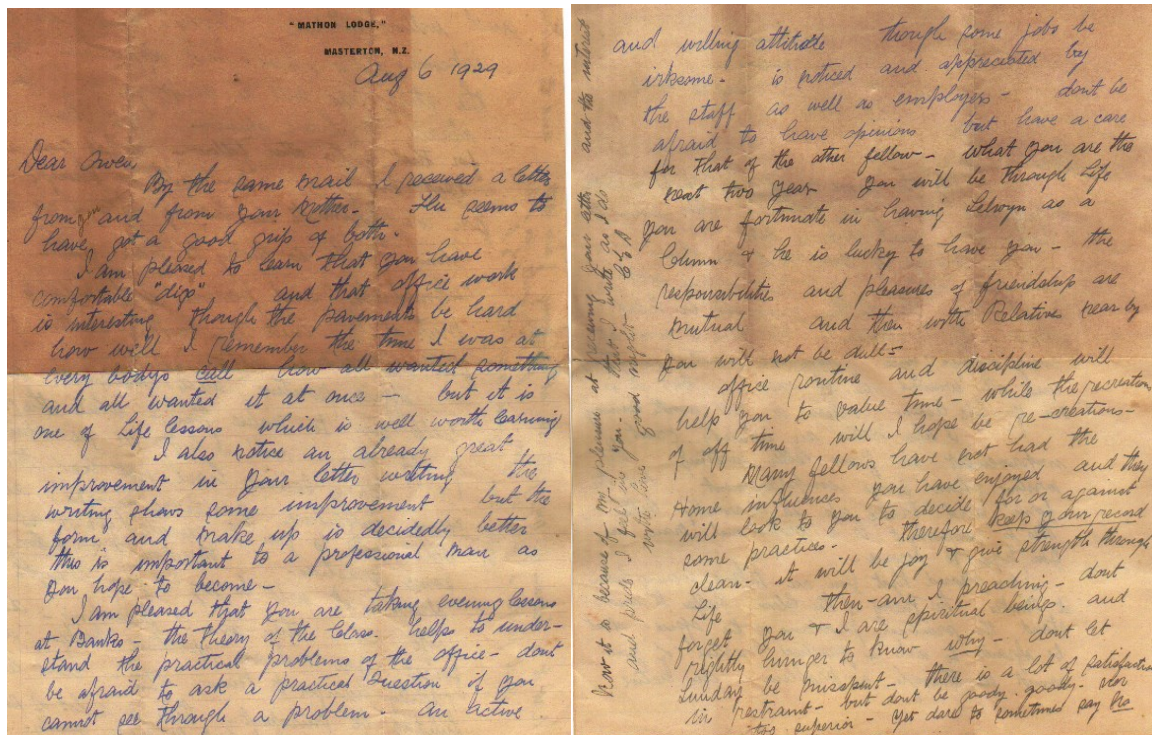 "MATHON LODGE,"
MASTERTON, N.Z.
Aug 6 1929
Dear Owen,
By the same mail I received a letter
from you and from your Mother. Flu seems to
have got a good grip of both.
I am pleased to learn that you have
comfortable "digs" and that office work
is interesting though the pavements be hard
how well I remember the time I was at
every bodys call how all wanted something
and all wanted it at once — but it is
one of Life lessons which is well worth learning
I also notice an already great
improvement in your letter writing the
writing shows some improvement but the
form and make up is decidedly better
this is important to a professional man as
you hope to become —
I am pleased that you are taking evening lessons
at Banks — the theory of the Class helps to under-
stand the practical problems of the office — dont
be afraid to ask a practical question if you
cannot see through a problem. an active
and willing attitude though some jobs be
irksome — is noticed and appreciated by
the staff as well as employers — dont be
afraid to have opinions but have a care
for that of the other fellow — what you are the
next two year you will be through Life
you are fortunate in having Selwyn as a
Chum & he is lucky to have you — the
responsibilities and pleasures of friendship are
mutual and then with Relative near by
you will not be dull =
office routine and discipline will
help you to value time — while the recreation
of off time will I hope be re-creations —
Many fellows have not had the
Home influences you have enjoyed and they
will look to you to decide for or against
some practices. therefore keep your record
clean — it will be joy & give strength through
Life then — am I preaching — dont
forget you & I are spiritual beings and
rightly hunger to know why — dont let
Sunday be misspent — there is a lot of satisfaction
in restraint — but dont be goody-goody — nor
too superior — yet dare to sometimes say No
know it is because of my pleasure at receiving your and the interest
and pride I feel in you — that I write as I do
with love good